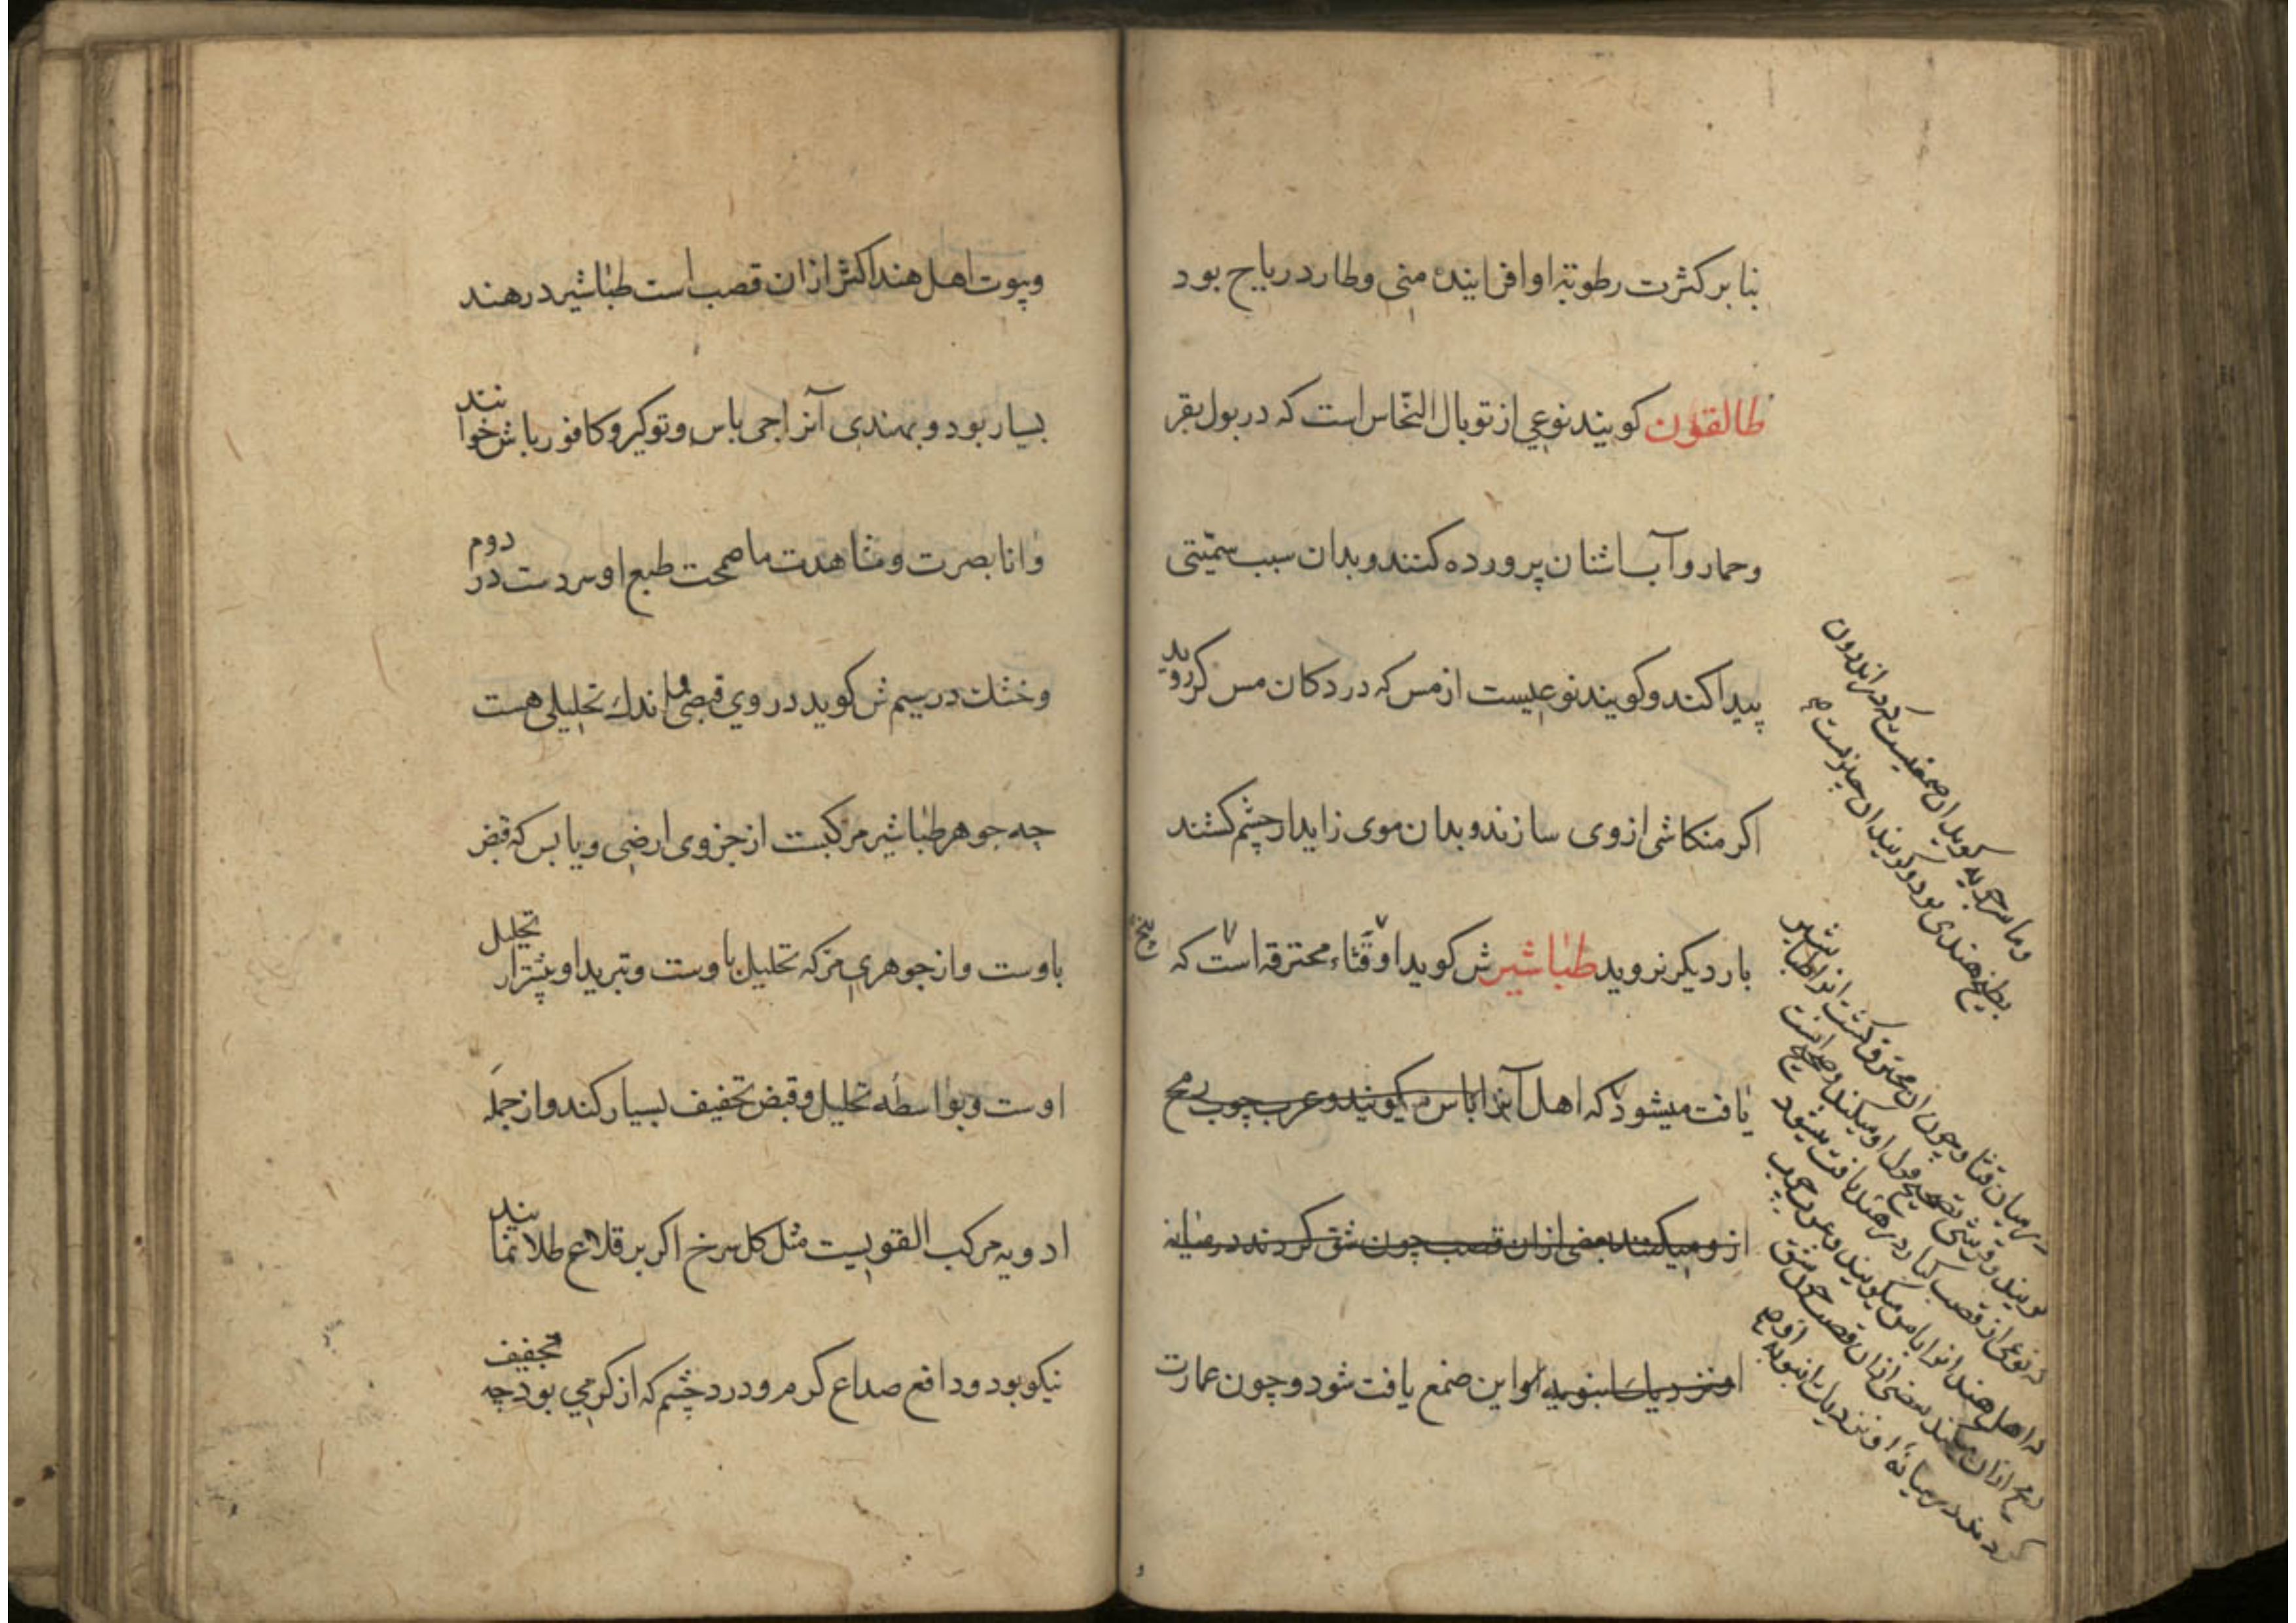 بنا بر کثرت رطوبته او افزاینده منی و طارد ریاح بود
طالقون کویند نوعی از توبال النحاس است که در بول بقر
وحمار و آب اشنان پرورده کنند و بدان سبب سمّیتی
پیدا کند و کویند نوعیست از مس که در دکان مس کر روید
اکر منکاشی از وی سازند و بدان موی زاید از چشم کشند
بار دیکر نروید طباشیر ش کوید او قثاء محترقه است که
یافت میشود که اهل آنرا باس میکویند و عرب چوب رمح
از و میکنند بعضی از ان قصب چون شق کردند در میانه
او نزدیک انبوبه او این صمغ یافت شود و چون عمارت
وما سرجویه کوید ان صمغیست که در اندرون
بطیخ هندی بود و کویند ان چیزیست
در میان قثا و چون ان محترق کشت انرا طباشیر
کویند و قرشی تصحیح قول او میکند و صحیح انست
که نوعی از قصب کبار در هند یافت میشود
که اهل هند انرا باس میکویند و عرب چوب
رمح ازان میکنند بعضی ازان قصب چون شق
کردند در میانه او نزدیک انبوبه او
وپوت اهل هند اکثر ازان قصب است طباشیر در هند
بسیار بود و بهندی آنرا جی باس و توکیر و کافور باش خوانند
وانا بصرت و شاهدت ما صححت طبع او سردست در دوم
وخشك در سیم ش کوید در وی قبضی و اندك تحلیلی هست
چه جوهر طباشیر مرکبست از جزوی ارضی و یابس که قبض
باوست واز جوهری مرّ که تحلیل باوست و تبرید او بیشتر از تحلیل
اوست و بواسطه تحلیل و قبض تخفیف بسیار کند و از جمله
ادویه مرکب القویست مثل کل سرخ اکر بر قلاع طلا نمایند
نیکو بود و دافع صداع کرم و درد چشم که از کرمی بود چه تجفیف